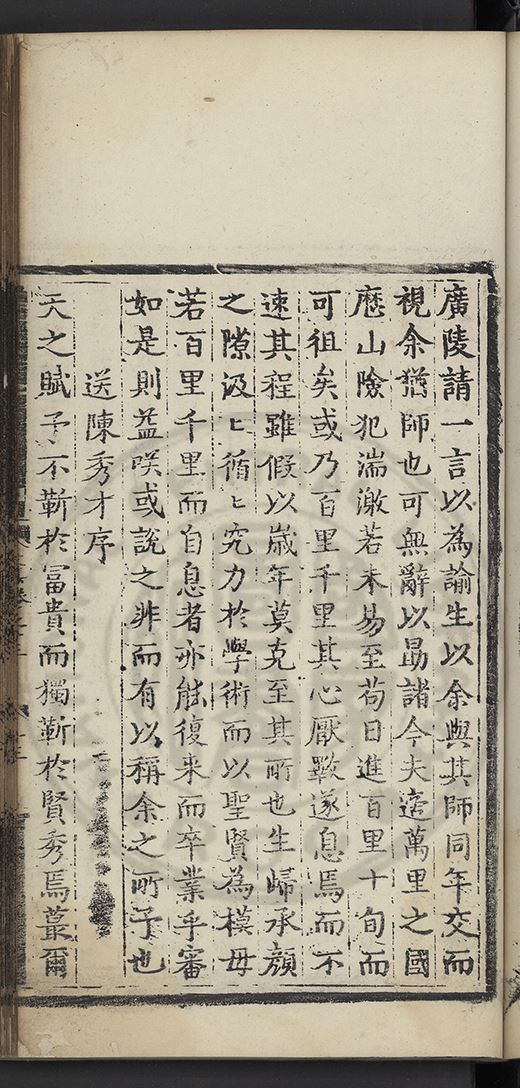 廣陵請一言以為諭生以余與其師同年交而
視余猶師也可無辭以勗諸今夫適萬里之國
歷山險犯湍激若未易至苟日進百里十旬而
可徂矣或乃百里千里其心厭斁遂息焉而不
速其程雖假以歲年莫克至其所也生歸承顏
之隙汲〻循〻究力於學術而以聖賢為模毋
若百里千里而自息者亦能復來而卒業乎審
如是則益唉或說之非而有以稱余之所予也
送陳秀才序
天之賦予不靳於富貴而獨靳於賢秀焉蕞爾